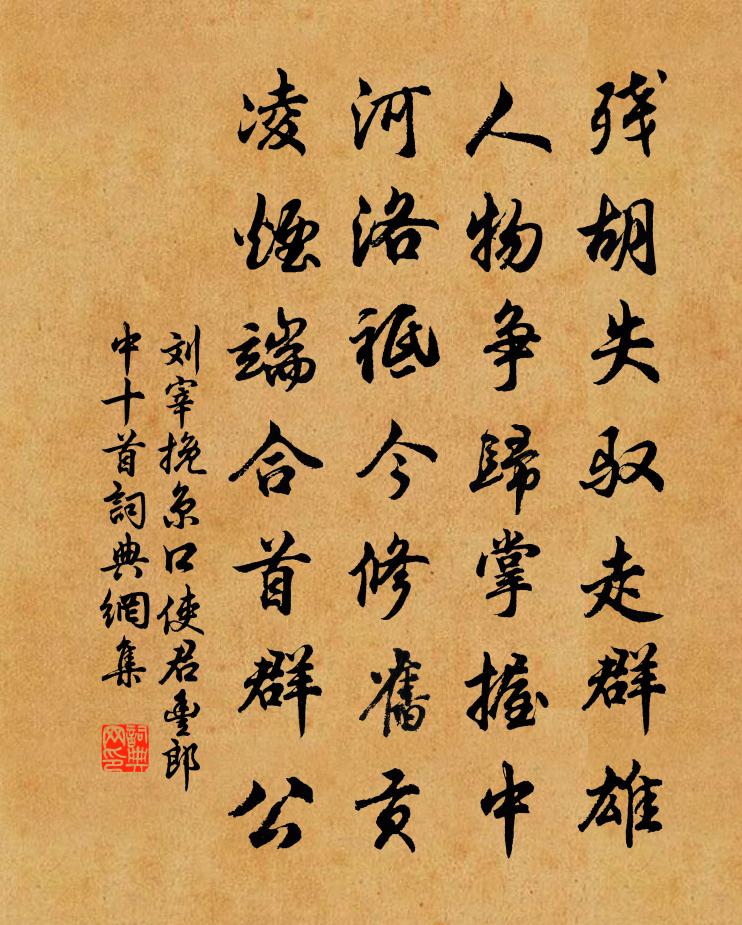 残胡失驭走群雄
人物争歸掌握中
河洛祗今修舊贡
凌煙端合首群公
刘宰挽京口使君豐郎
中十首詞典網集
詞典网印